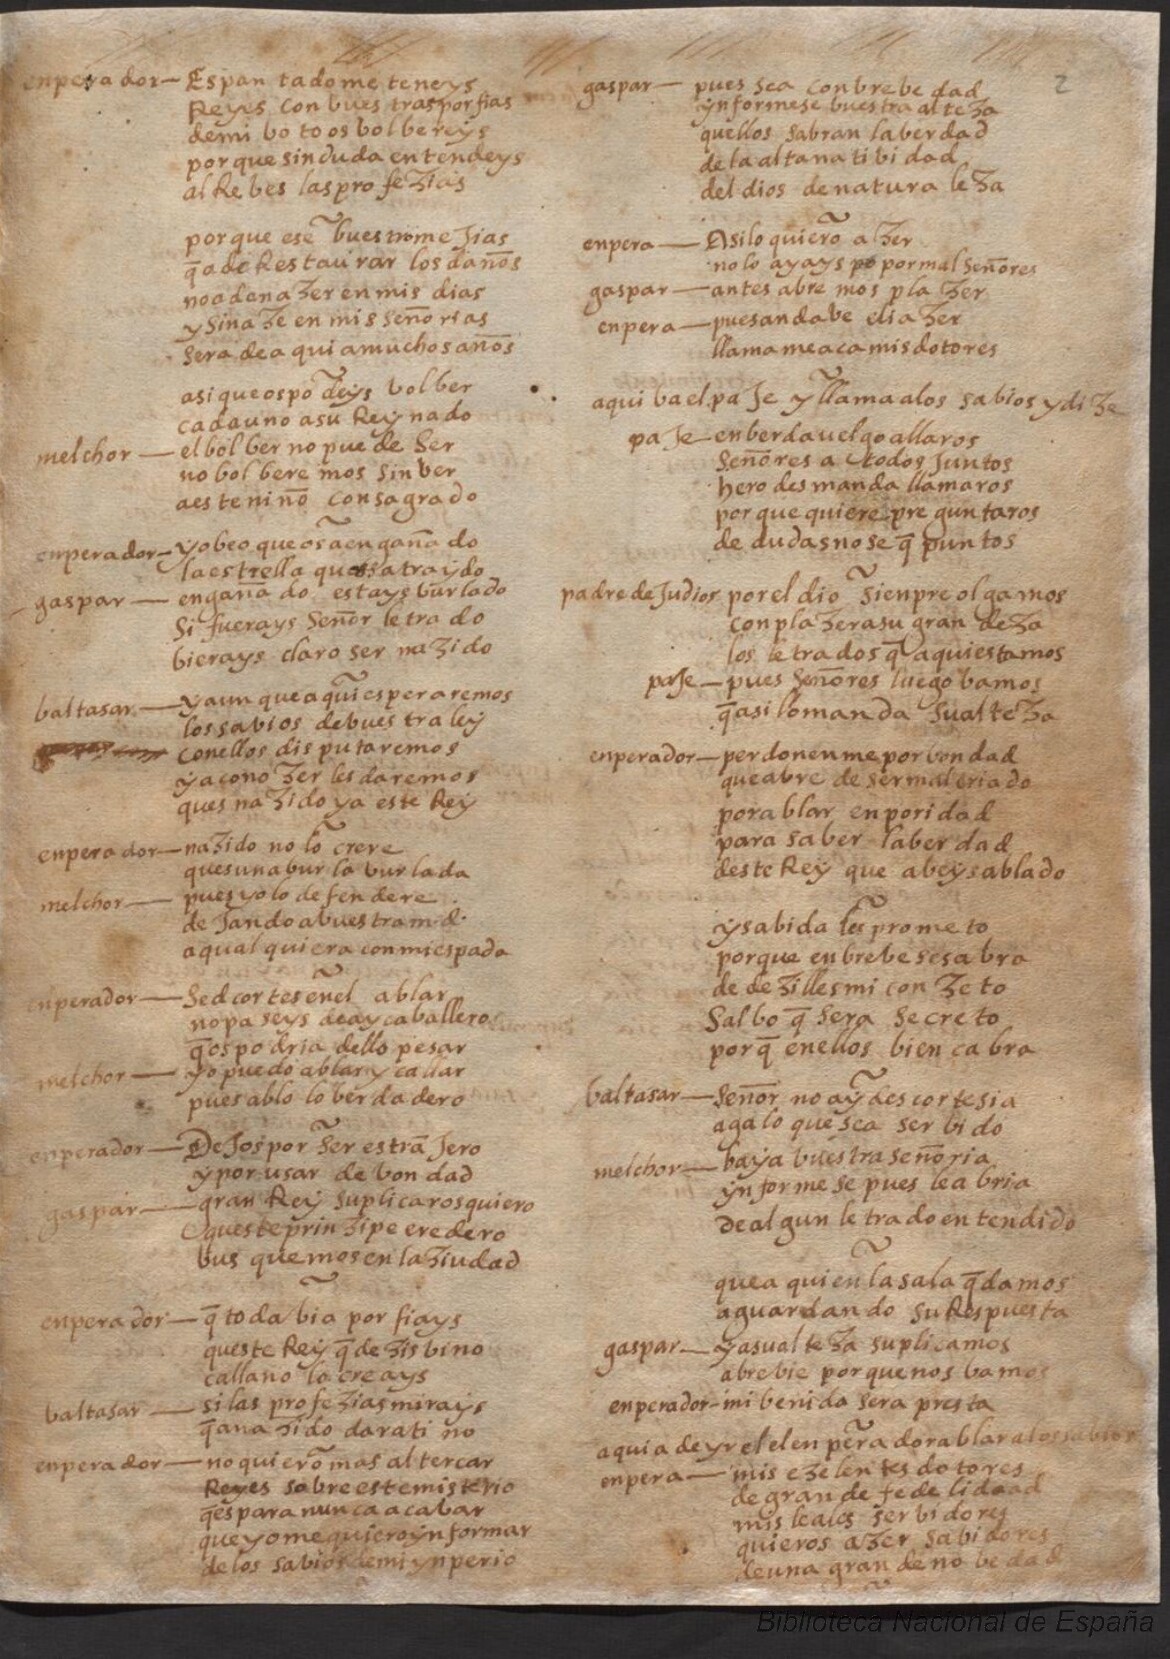 enperador— Espantadome teneys
Reyes con buestras porfias
de mi boto os bolbereys
por que sin duda entendeys
al Rebes las profezias
por que ese buestro mejias
q̃ a de Restaurar los daños
no a de nazer en mis dias
y si naze en mis señorias
sera de aqui a muchos años
asi que os podeys bolber
cada uno a su Reynado
melchor— el bolber no puede ser
no bolberemos sin ber
a este niño consagrado
enperador— yo beo que os a engañado
la estrella que os a traydo
gaspar— engañado estays burlado
si fuerays señor letrado
bierays claro ser nazido
baltasar— y aunque aqui esperaremos
los sabios de buestra ley
con ellos disputaremos
y a conozer les daremos
ques nazido ya este Rey
enperador— nazido no lo crere
ques una burla burlada
melchor— pues yo lo defendere
dejando a buestra m.d.
a qual quiera con mi espada
enperador— Sed cortes en el ablar
no paseys de ay caballero
q̃ os podria dello pesar
melchor— yo puedo ablar y callar
pues ablo lo berdadero
enperador— Dejos por ser estrãjero
y por usar de bondad
gaspar— gran Rey suplicaros quiero
queste prinzipe eredero
busquemos en la ziudad
enperador— q̃ toda bia porfiays
queste Rey q̃ dezis bino
calla no lo creays
baltasar— si las profezias mirays
q̃ a nazido dara tino
enperador— no quiero mas altercar
Reyes sobre este misterio
q̃s para nunca acabar
que yo me quiero ynformar
de los sabios de mi ynperio
2
gaspar— pues sea con brebedad
ynformese buestra alteza
quellos sabran la berdad
de la alta natibidad
del dios de naturaleza
enpera— Asi lo quiero azer
no lo ayays por mal señores
gaspar— antes abremos plazer
enpera— pues anda be eliazer
llamame aca mis dotores
aqui ba el paje y llama a los sabios y dize
paje— en berda uelgo allaros
señores a todos juntos
herodes manda llamaros
por que quiere preguntaros
de dudas no se q̃ puntos
padre de judios por el dio sienpre olgamos
con plazer a su grandeza
los letrados q̃ aqui estamos
paje— pues señores luego bamos
q̃ asi lo manda su alteza
enperador— perdonenme por bondad
que abre de ser mal criado
por ablar en poridad
para saber la berdad
deste Rey que abeys ablado
y sabida les prometo
porque en brebe se sabra
de dezilles mi conzeto
salbo q̃ sera secreto
porq̃ en ellos bien cabra
baltasar— señor no ay descortesia
aga lo que sea serbido
melchor— baya buestra señoria
ynformese pues lea bria
de algun letrado entendido
que aqui en la sala q̃damos
aguardando su Respuesta
gaspar— y a su alteza suplicamos
abrebie porque nos bamos
enperador— mi benida sera presta
aqui a de yr el enperador a ablar a los sabios
enpera— mis ezelentes dotores
de grande fedelidad
mis leales serbidores
quieros azer sabidores
de una grande nobedad
Biblioteca Nacional de España